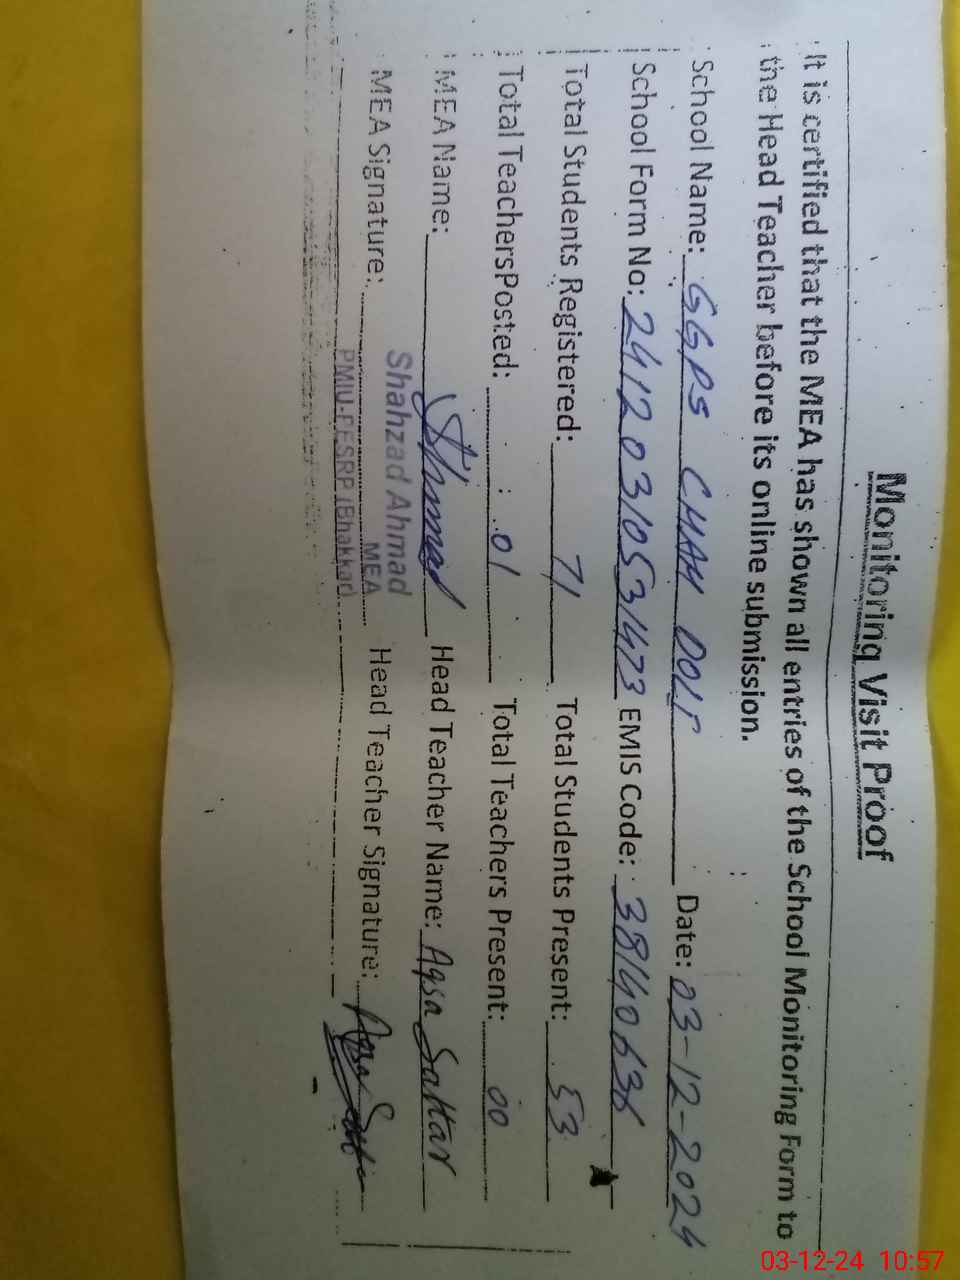 Monitoring Visit Proof
It is certified that the MEA has shown all entries of the School Monitoring Form to
the Head Teacher before its online submission.
School Name: GGPS CHAH DOLT Date: 03-12-2024
School Form No: 24120310531473 EMIS Code: 3840636
Total Students Registered: 71 Total Students Present: 53
Total TeachersPosted: 01 Total Teachers Present: 00
MEA Name: Ahmad Head Teacher Name: Aqsa Sattar
Shahzad Ahmad
MEA Signature: MEA Head Teacher Signature: Aqsa
PMIU-PESRP (Bhakkar)
03-12-24 10:57